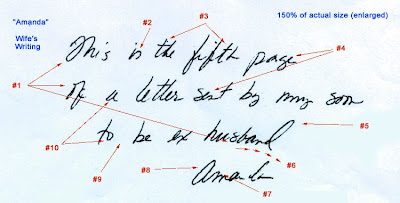 "Amanda"
150% of actual size (enlarged)
Wife's
Writing
#2
#3
#4
#1
This is the fifth page
of a letter sent by my soon
#5
to be ex husband
#10
#6
#9
#8
Amanda
#7